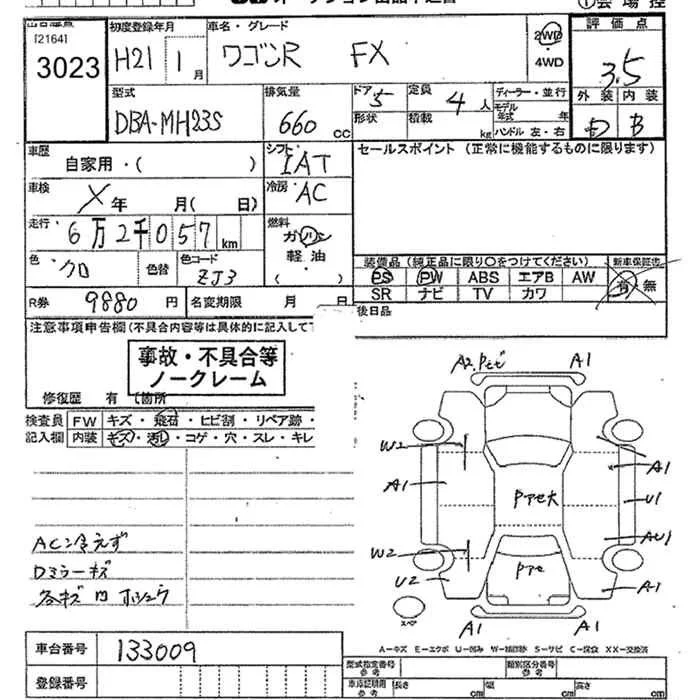 オークション出品申込書
①会場控
出品番号
[2164]
3023
初度登録年月
H21 1月
車名・グレード
ワゴンR FX
2WD
・
4WD
評価点
3.5
型式
DBA-MH23S
排気量
660 cc
ドア・形状
5
定員・積載
4人
kg
ディーラー・並行
モデル年式 年
ハンドル 左・右
外装 内装
D B
車歴
自家用・( )
シフト
IAT
セールスポイント (正常に機能するものに限ります)
車検
X年 月( 日)
冷房
AC
走行
6万2千057km
燃料
ガソリン
・
軽油
( )
色
クロ
色替
色コード
ZJ3
装備品(純正品に限り○をつけてください)
新車保証書
PS PW ABS エアB AW
SR ナビ TV カワ
有・無
R券 9880円
名変期限 月 日
後日品
注意事項申告欄(不具合内容等は具体的に記入して下
事故・不具合等
ノークレーム
修復歴 有 〔箇所
検査員記入欄
FW キズ・飛石・ヒビ割・リペア跡・
内装 キズ・汚れ・コゲ・穴・スレ・キレ
ACン冷えず
Dミラーキズ
各キズ凹ホシュウ
A1
W2
A1
A1
U1
A1
PテE大
W2
AU1
U2
Pテe
A1
スペア
A1
A1
A−キズ E−エクボ U−凹み W−補修跡 S−サビ C−腐食 XX−交換済
車台番号
133009
登録番号
型式指定番号
参考
類別区分番号
参考
車庫証明用
参考
長さ cm
幅 cm
高さ cm